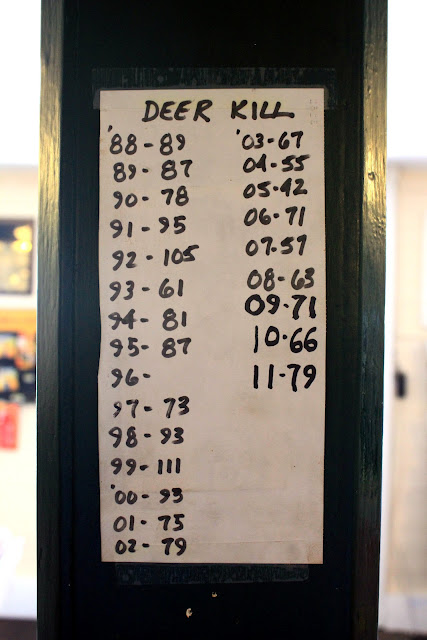 DEER KILL
'88 - 89
89 - 87
90 - 78
91 - 95
92 - 105
93 - 61
94 - 81
95 - 87
96 -
97 - 73
98 - 93
99 - 111
'00 - 93
01 - 75
02 - 79
'03 - 67
04 - 55
05 - 42
06 - 71
07 - 57
08 - 63
09 - 71
10 - 66
11 - 79